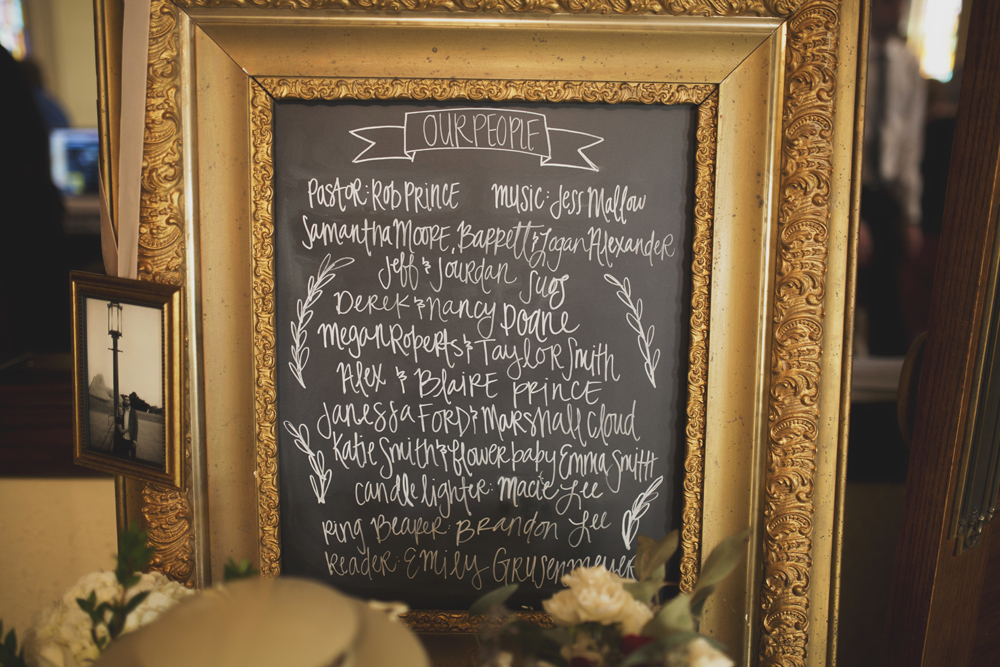 OUR PEOPLE
Pastor: Rob Prince music: Jess Mallow
Samantha Moore, Barrett & Logan Alexander
Jeff & Jourdan Sugs
Derek & Nancy Doane
Megan Roberts & Taylor Smith
Alex & Blaire Prince
Janessa Ford & Marshall Cloud
Katie Smith & flower baby Emma Smith
candle lighter: Macie Lee
Ring Bearer: Brandon Lee
Reader: Emily Grusenmeyer